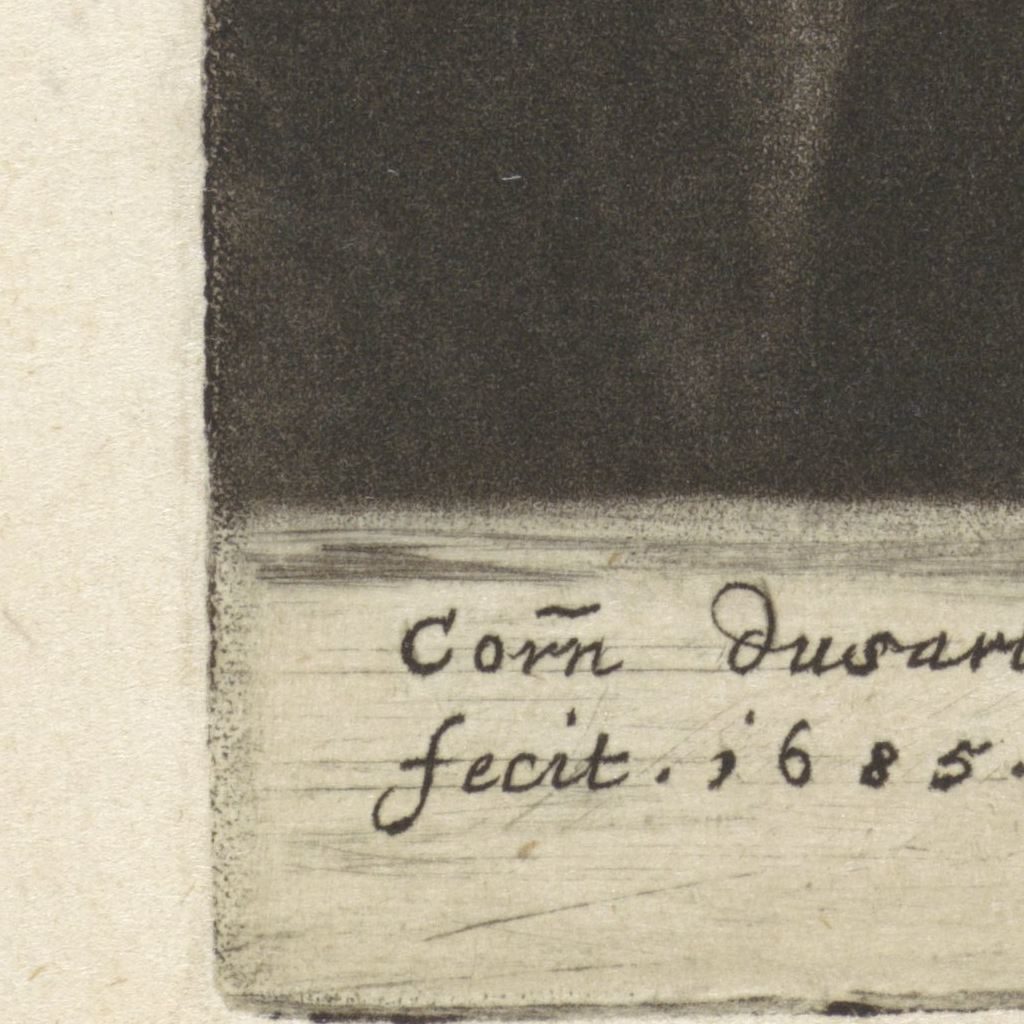 Corn̄ dusart
fecit. 1685.